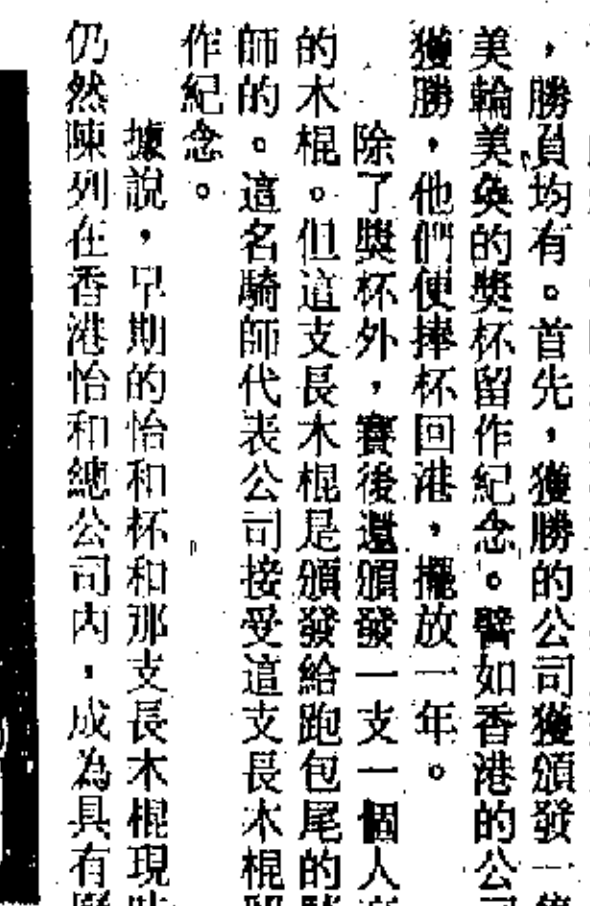 ，勝負均有。首先，獲勝的公司獲頒發一
美輪美奐的獎杯留作紀念。譬如香港的公
獲勝，他們便捧杯回港，擺放一年。
除了獎杯外，賽後還頒發一支一個人
的木棍。但這支長木棍是頒發給跑包尾的
師的。這名騎師代表公司接受這支長木棍
作紀念。
據說，早期的怡和杯和那支長木棍現
仍然陳列在香港怡和總公司內，成為具有